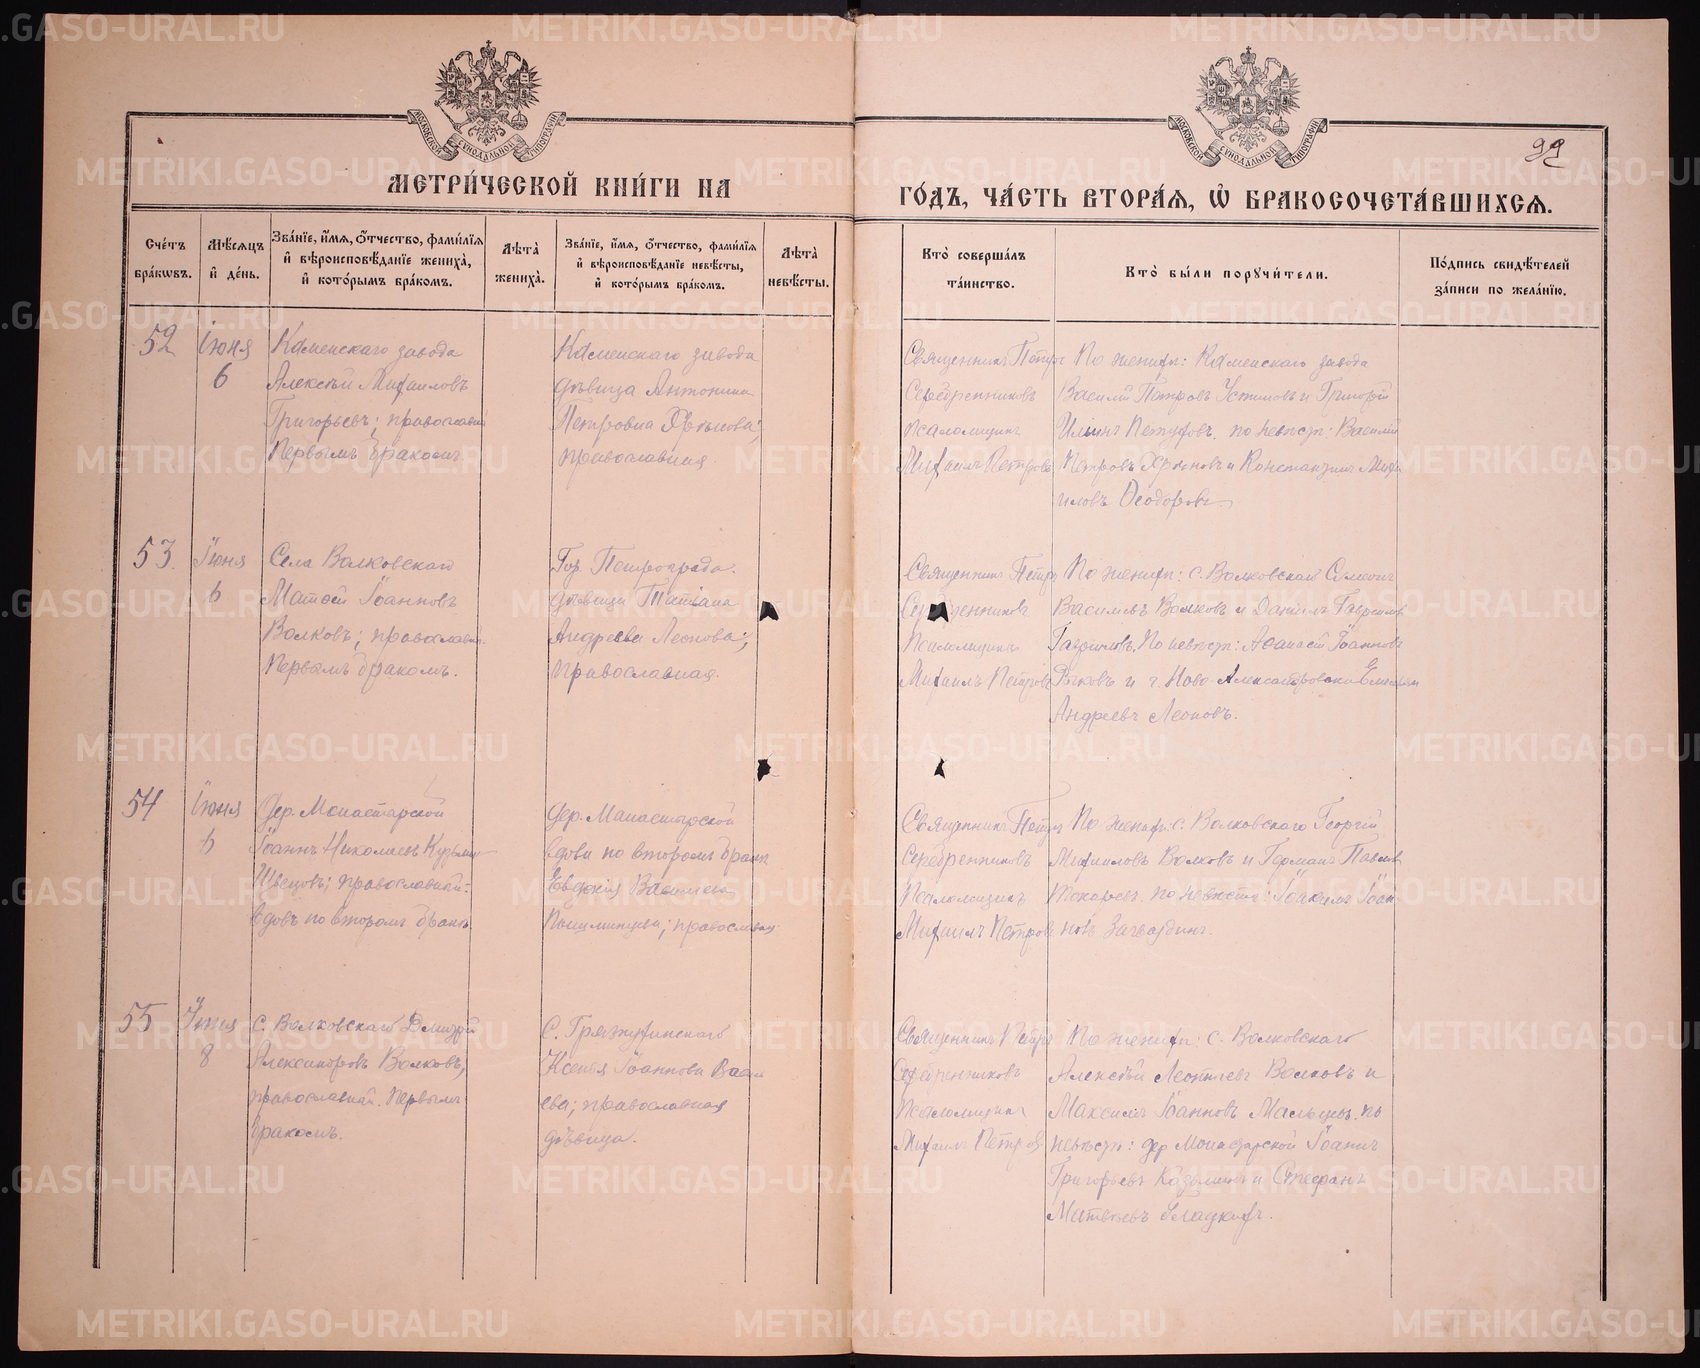 99
МЕТРИ́ЧЕСКОЙ КНИ́ГИ НА
ГО́ДЪ, ЧА́СТЬ ВТОРА́Я, Ѡ҆ БРАКОСОЧЕТА́ВШИХСЯ.
Сче́тъ бра́кѡвъ.
Мѣ́сяцъ и҆ де́нь.
Зва́нїе, и҆́мя, ѻ҆́тчество, фами́лїя и҆ вѣроисповѣ́данїе жениха̀, и҆ кото́рымъ бра́комъ.
Лѣта̀ жениха̀.
Зва́нїе, и҆́мя, ѻ҆́тчество, фами́лїя и҆ вѣроисповѣ́данїе невѣ́сты, и҆ кото́рымъ бра́комъ.
Лѣта̀ невѣ́сты.
Кто̀ соверша́лъ та́инство.
Кто̀ бы́ли порꙋчи́тели.
По́дпись свидѣ́телей за́писи по жела́нїю.
52
Iюня
6
Каменскаго завода
Алексѣй Михаиловъ
Григорьевъ; православный
Первымъ бракомъ
Каменскаго завода
дѣвица Антонина
Петровна
православная.
Священникъ Петръ
Серебренниковъ
псаломщикъ
Михаилъ Петровъ
По женихѣ: Каменскаго завода
Василій Петровъ Устиновъ и Григорій
Ильинъ по невѣстѣ: Василій
Петровъ и Константинъ Миха
иловъ Ѳеодоровъ
53.
Iюня
6
Села Волковскаго
Матѳей Iоанновъ
Волковъ; православн.
Первымъ бракомъ.
Гор. Петрограда.
дѣвица Татiана
Андреева Леонова;
православная.
Священникъ Петръ
Серебренниковъ
Псаломщикъ
Михаилъ Петровъ
По женихѣ: с. Волковскаго Симеонъ
Васильевъ Волковъ и Даніилъ Гаврилов
Гавриловъ. По невѣстѣ: Аѳанасій Iоанновъ
и г. Ново-Александровска
Андреевъ Леоновъ.
54
Iюня
6
Дер. Монастырской
Iоаннъ Николаевъ
Швецовъ; православный
вдовъ по второмъ бракѣ.
Дер. Монастырской
вдова по второмъ бракѣ
Евдокія Васильева
Пышминцева; православная
Священникъ Петръ
Серебренниковъ
Псаломщикъ
Михаилъ Петровъ
По женихѣ: с. Волковскаго Георгій
Михаиловъ Волковъ и Германъ Павлов
Токаревъ. по невѣстѣ: Iоакимъ Iоан
новъ Загвоздинъ.
55
Iюня
8
С. Волковскаго Дмитрій
Александровъ Волковъ;
православный. Первымъ
бракомъ.
С. Грязнухинскаго
Ксенiя Iоаннова Васил
ева; православная
дѣвица.
Священникъ Петръ
Серебренниковъ
Псаломщикъ
Михаилъ Петровъ
По женихѣ: с. Волковскаго
Алексѣй Леонтьевъ Волковъ и
Максимъ Iоанновъ Мальцевъ. по
невѣстѣ: дер. Монастырской Iоаннъ
Григорьевъ Козьминъ и Стефанъ
Матвѣевъ Гладкихъ.
METRIKI.GASO-URAL.RU